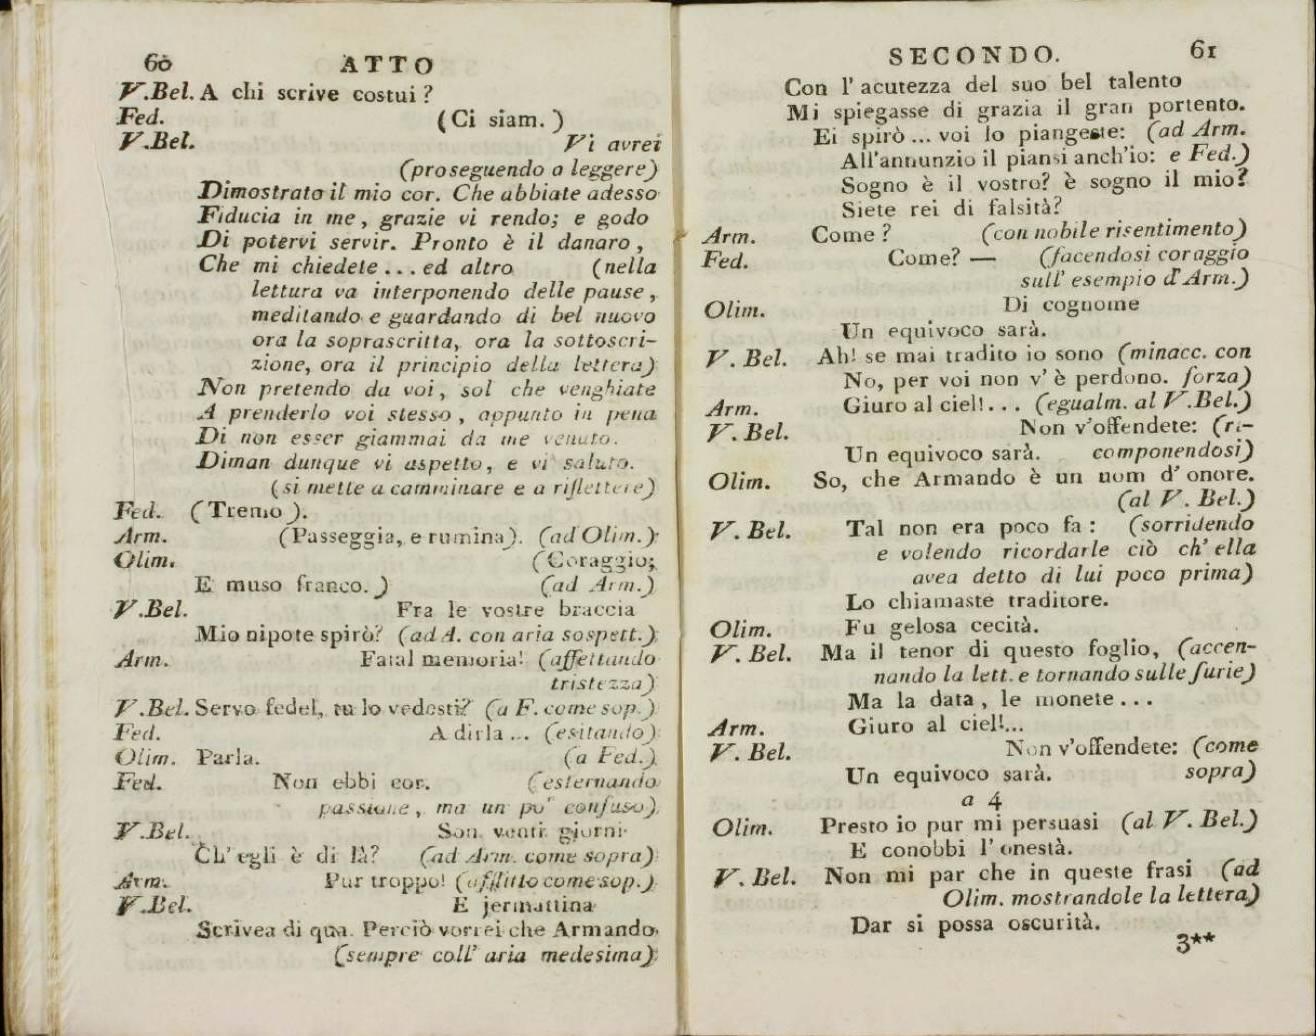 60 ATTO
V.Bel. A chi scrive costui?
Fed. (Ci siam.)
V.Bel. Vi avrei
(proseguendo a leggere)
Dimostrato il mio cor. Che abbiate adesso
Fiducia in me, grazie vi rendo; e godo
Di potervi servir. Pronto è il danaro,
Che mi chiedete... ed altro (nella
lettura va interponendo delle pause,
meditando e guardando di bel nuovo
ora la soprascritta, ora la sottoscri-
zione, ora il principio della lettera)
Non pretendo da voi, sol che venghiate
A prenderlo voi stesso, appunto in pena
Di non esser giammai da me venuto.
Diman dunque vi aspetto, e vi saluto.
(si mette a camminare e a riflettere)
Fed. (Tremo).
Arm. (Passeggia, e rumina). (ad Olim.)
Olim. (Coraggio;
E muso franco.) (ad Arm.)
V.Bel. Fra le vostre braccia
Mio nipote spirò? (ad A. con aria sospett.)
Arm. Fatal memoria! (affettando
tristezza)
V.Bel. Servo fedel, tu lo vedesti? (a F. come sop.)
Fed. A dirla... (esitando)
Olim. Parla. (a Fed.)
Fed. Non ebbi cor. (esternando
passione, ma un po' confuso)
V.Bel. Son venti giorni
Ch'egli è di là? (ad Arm. come sopra)
Arm. Pur troppo! (afflitto come sop.)
V.Bel. E jermattina
Scrivea di qua. Perciò vorrei che Armando
(sempre coll' aria medesima)
SECONDO. 61
Con l'acutezza del suo bel talento
Mi spiegasse di grazia il gran portento.
Ei spirò... voi lo piangeste: (ad Arm.
All'annunzio il piansi anch'io: e Fed.)
Sogno è il vostro? è sogno il mio?
Siete rei di falsità?
Arm. Come? (con nobile risentimento)
Fed. Come? — (facendosi coraggio
sull' esempio d'Arm.)
Olim. Di cognome
Un equivoco sarà.
V. Bel. Ah! se mai tradito io sono (minacc. con
No, per voi non v'è perdono. forza)
Arm. Giuro al ciel!... (egualm. al V.Bel.)
V. Bel. Non v'offendete: (ri-
Un equivoco sarà. componendosi)
Olim. So, che Armando è un uom d'onore.
(al V. Bel.)
V. Bel. Tal non era poco fa: (sorridendo
e volendo ricordarle ciò ch' ella
avea detto di lui poco prima)
Lo chiamaste traditore.
Olim. Fu gelosa cecità.
V. Bel. Ma il tenor di questo foglio, (accen-
nando la lett. e tornando sulle furie)
Ma la data, le monete...
Arm. Giuro al ciel!...
V. Bel. Non v'offendete: (come
Un equivoco sarà. sopra)
a 4
Olim. Presto io pur mi persuasi (al V. Bel.)
E conobbi l'onestà.
V. Bel. Non mi par che in queste frasi (ad
Olim. mostrandole la lettera)
Dar si possa oscurità.
3**